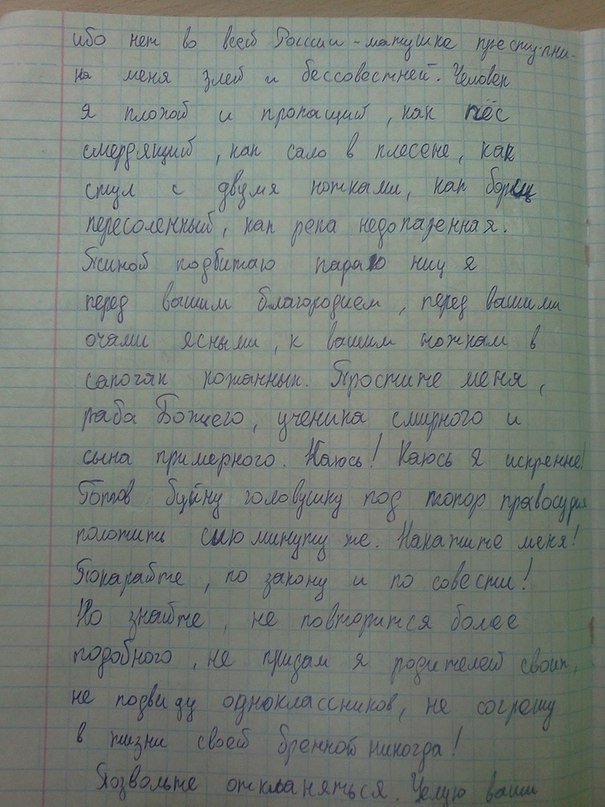 ибо нет во всей России-матушке преступни-
ка меня злей и бессовестней. Человек
я плохой и пропащий, как пёс
смердящий, как сало в плесене, как
стул с двумя ножками, как борщ
пересоленный, как репа недопаренная.
Псиной подбитаю падаю ниц я
перед вашим благородием, перед вашими
очами ясными, к вашим ножкам в
сапогах кожанных. Простите меня,
раба Божьего, ученика смирного и
сына примерного. Каюсь! Каюсь я искренне!
Готов буйну головушку под топор правосудия
положить сию минуту же. Накажите меня!
Покарайте, по закону и по совести!
Но знайте, не повторится более
подобного, не придам я родителей своих,
не подведу одноклассников, не согрешу
в жизни своей бренной никогда!
Позвольте откланяться. Целую ваши